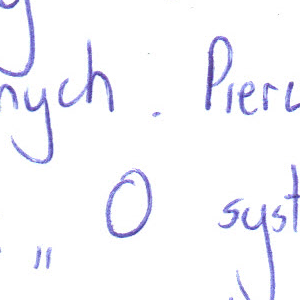 nych. Pierw
„ O syst